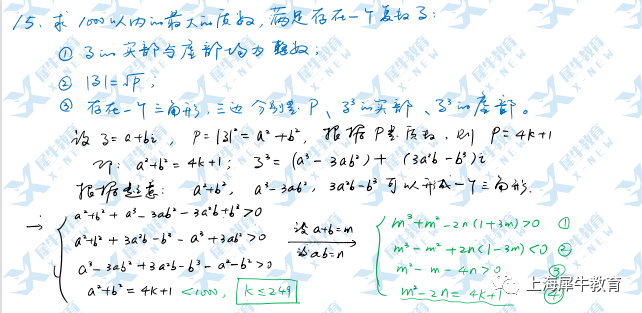 15. 求1000以内的最大的质数,满足存在一个复数z:
① z的实部与虚部均为整数;
② |z|=√P;
③ 存在一个三角形,三边分别是P、z³的实部、z³的虚部。
设z=a+bi,P=|z|²=a²+b²,根据P是质数,则P=4k+1
即:a²+b²=4k+1;z³=(a³-3ab²)+(3a²b-b³)i
根据题意:a²+b²,a³-3ab²,3a²b-b³可以形成一个三角形.
→ { a²+b²+a³-3ab²-3a²b+b³>0
a²+b²+3a²b-b³-a³+3ab²>0
a³-3ab²+3a²b-b³-a²-b²>0
a²+b²=4k+1<1000, k≤249
设a+b=m
设ab=n
{ m³+m²-2n(1+3m)>0 ①
m³-m²+2n(1-3m)<0 ②
m²-m-4n>0 ③
m²-2n=4k+1 ④
上海犀牛教育
犀牛教育
X·NEW